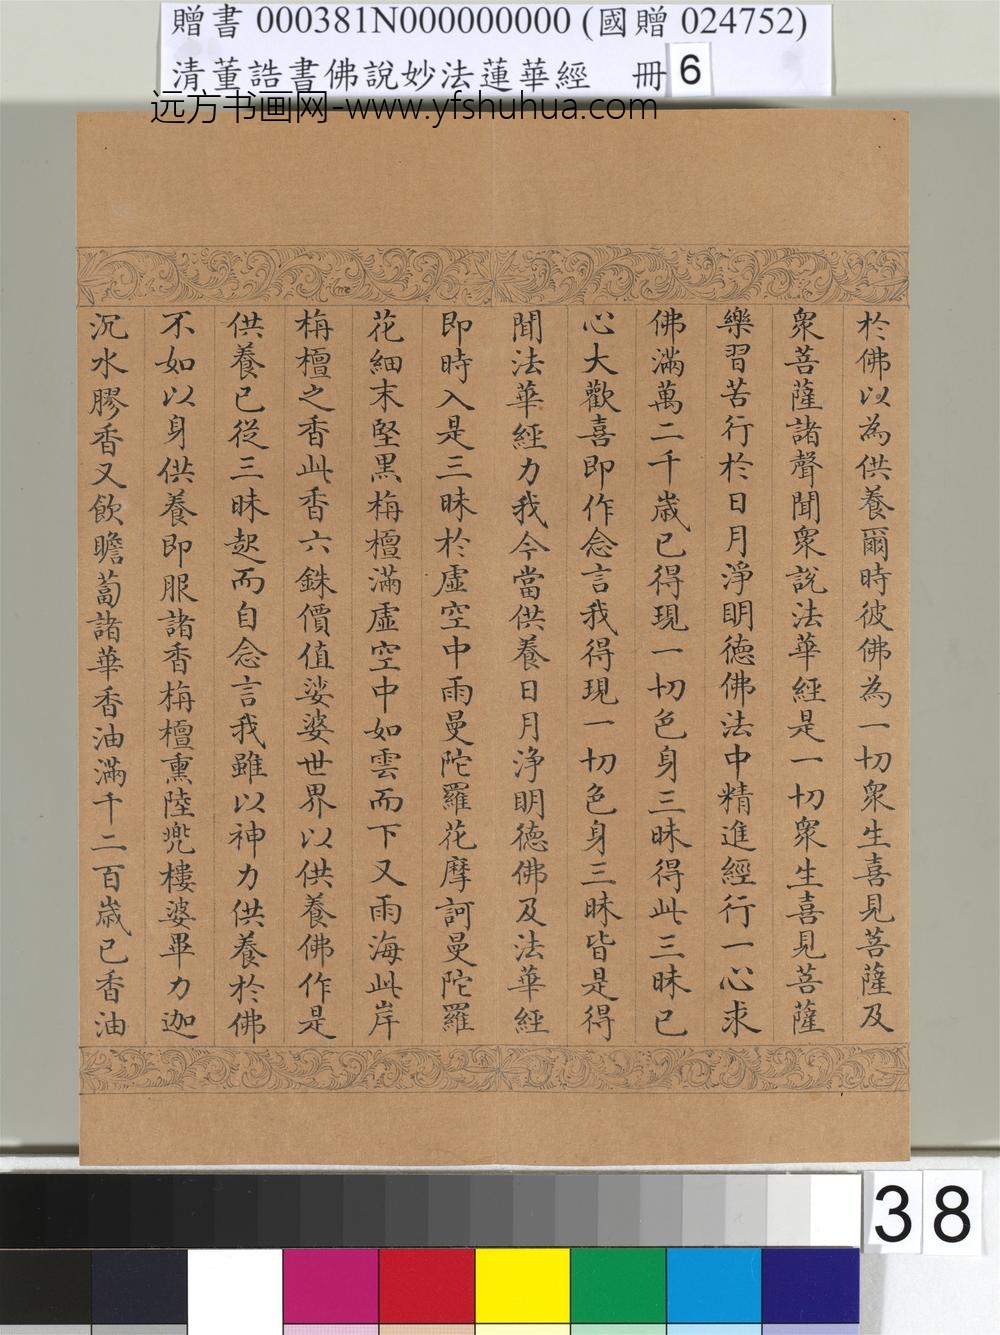 贈書 000381N000000000 (國贈 024752)
清董誥書佛說妙法蓮華經 冊 6
远方书画网-www.yfshuhua.com
於佛以為供養爾時彼佛為一切衆生喜見菩薩及
衆菩薩諸聲聞衆說法華經是一切衆生喜見菩薩
樂習苦行於日月淨明德佛法中精進經行一心求
佛滿萬二千歲已得現一切色身三昧得此三昧已
心大歡喜即作念言我得現一切色身三昧皆是得
聞法華經力我今當供養日月淨明德佛及法華經
即時入是三昧於虛空中雨曼陀羅花摩訶曼陀羅
花細末堅黑栴檀滿虛空中如雲而下又雨海此岸
栴檀之香此香六銖價值娑婆世界以供養佛作是
供養已從三昧起而自念言我雖以神力供養於佛
不如以身供養即服諸香栴檀熏陸兜樓婆畢力迦
沉水膠香又飲瞻蔔諸華香油滿千二百歲已香油
38